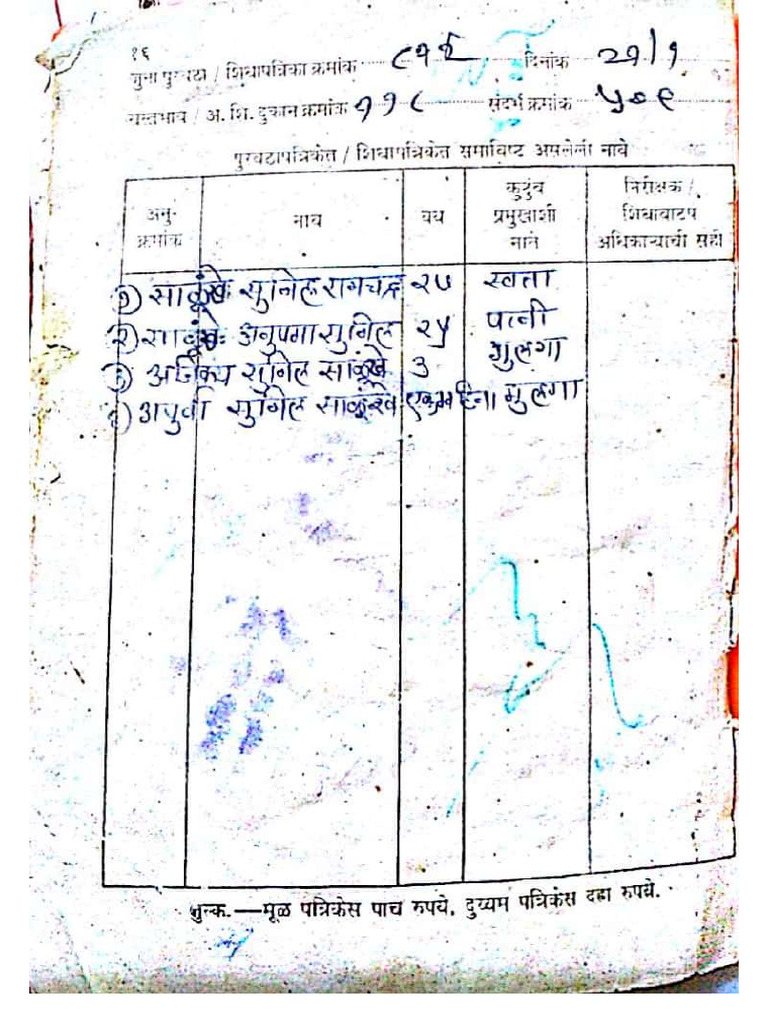 १६
जुना पुरवठा / शिधापत्रिका क्रमांक दिनांक २१/१
रास्तभाव / अ. शि. दुकान क्रमांक ११८ संदर्भ क्रमांक ५०९
पुरवठापत्रिकेत / शिधापत्रिकेत समाविष्ट असलेली नावे
अनु-क्रमांक नाव वय कुटुंब प्रमुखाशी नाते निरीक्षक / शिधावाटप अधिकाऱ्याची सही
१) साळूंखे सुनिल रामचंद्र २७ स्वता
२) साळूंखे अनुपमा सुनिल २५ पत्नी
३) अजिंक्य सुनिल साळूंखे ३ मुलगा
४) अपुर्वा सुनिल साळूंखे एकमहिना मुलगा
शुल्क.—मूळ पत्रिकेस पाच रुपये, दुय्यम पत्रिकेस दहा रुपये.